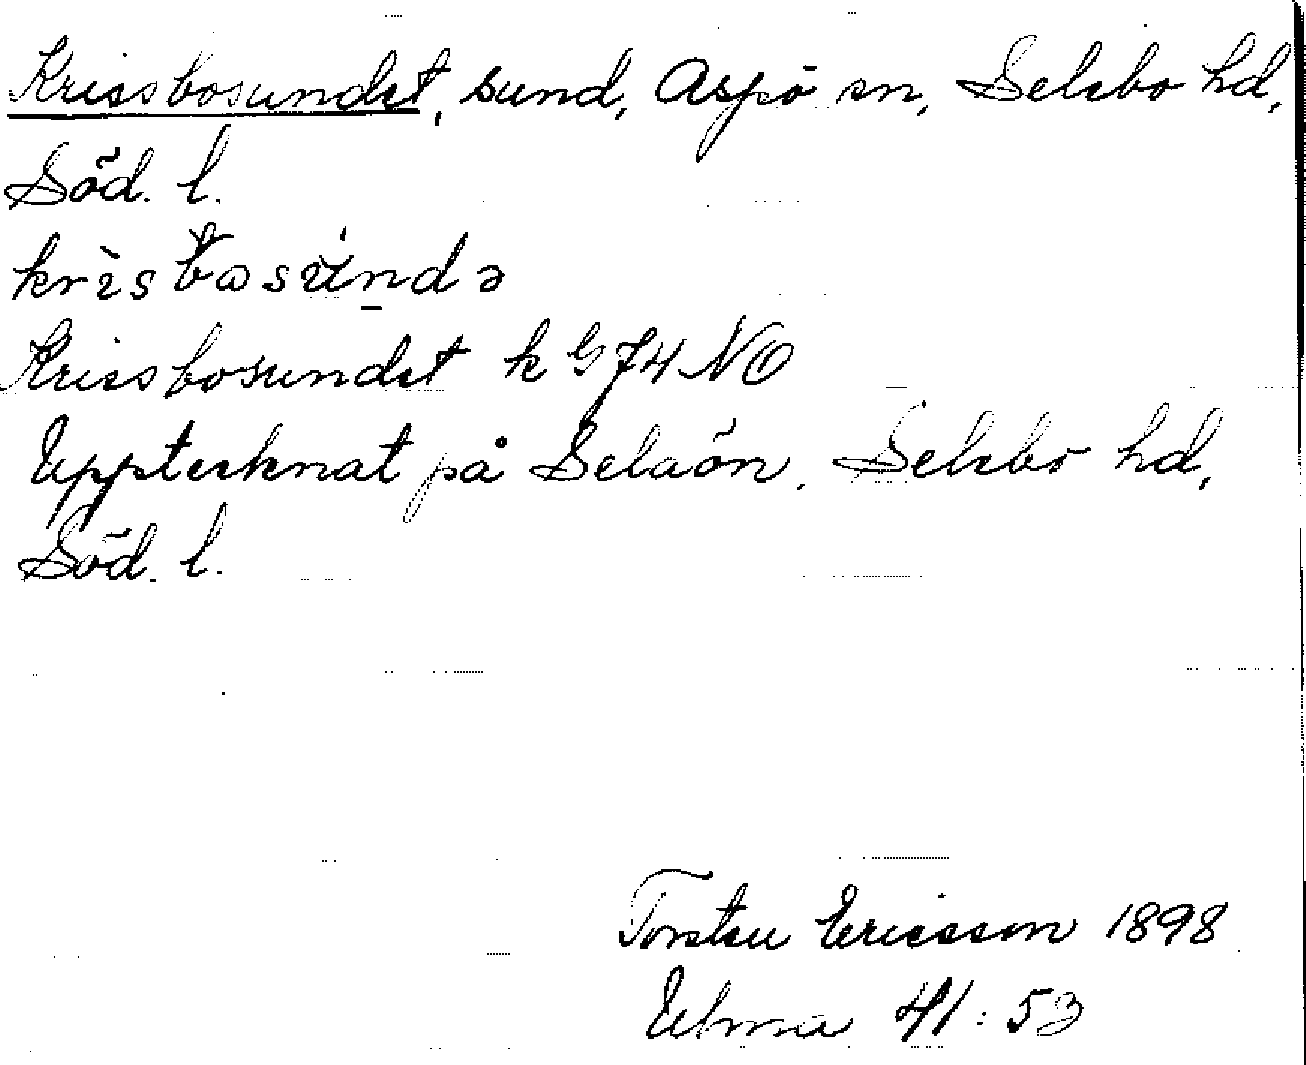 Krissbosundet, sund, Aspö sn, Selebo hd,
Söd. l.
Krissbosundet k G 74 NO
Upptecknat på Selaön, Selebo hd,
Söd. l.
Torsten Ericsson 1898
Ulma 41:53